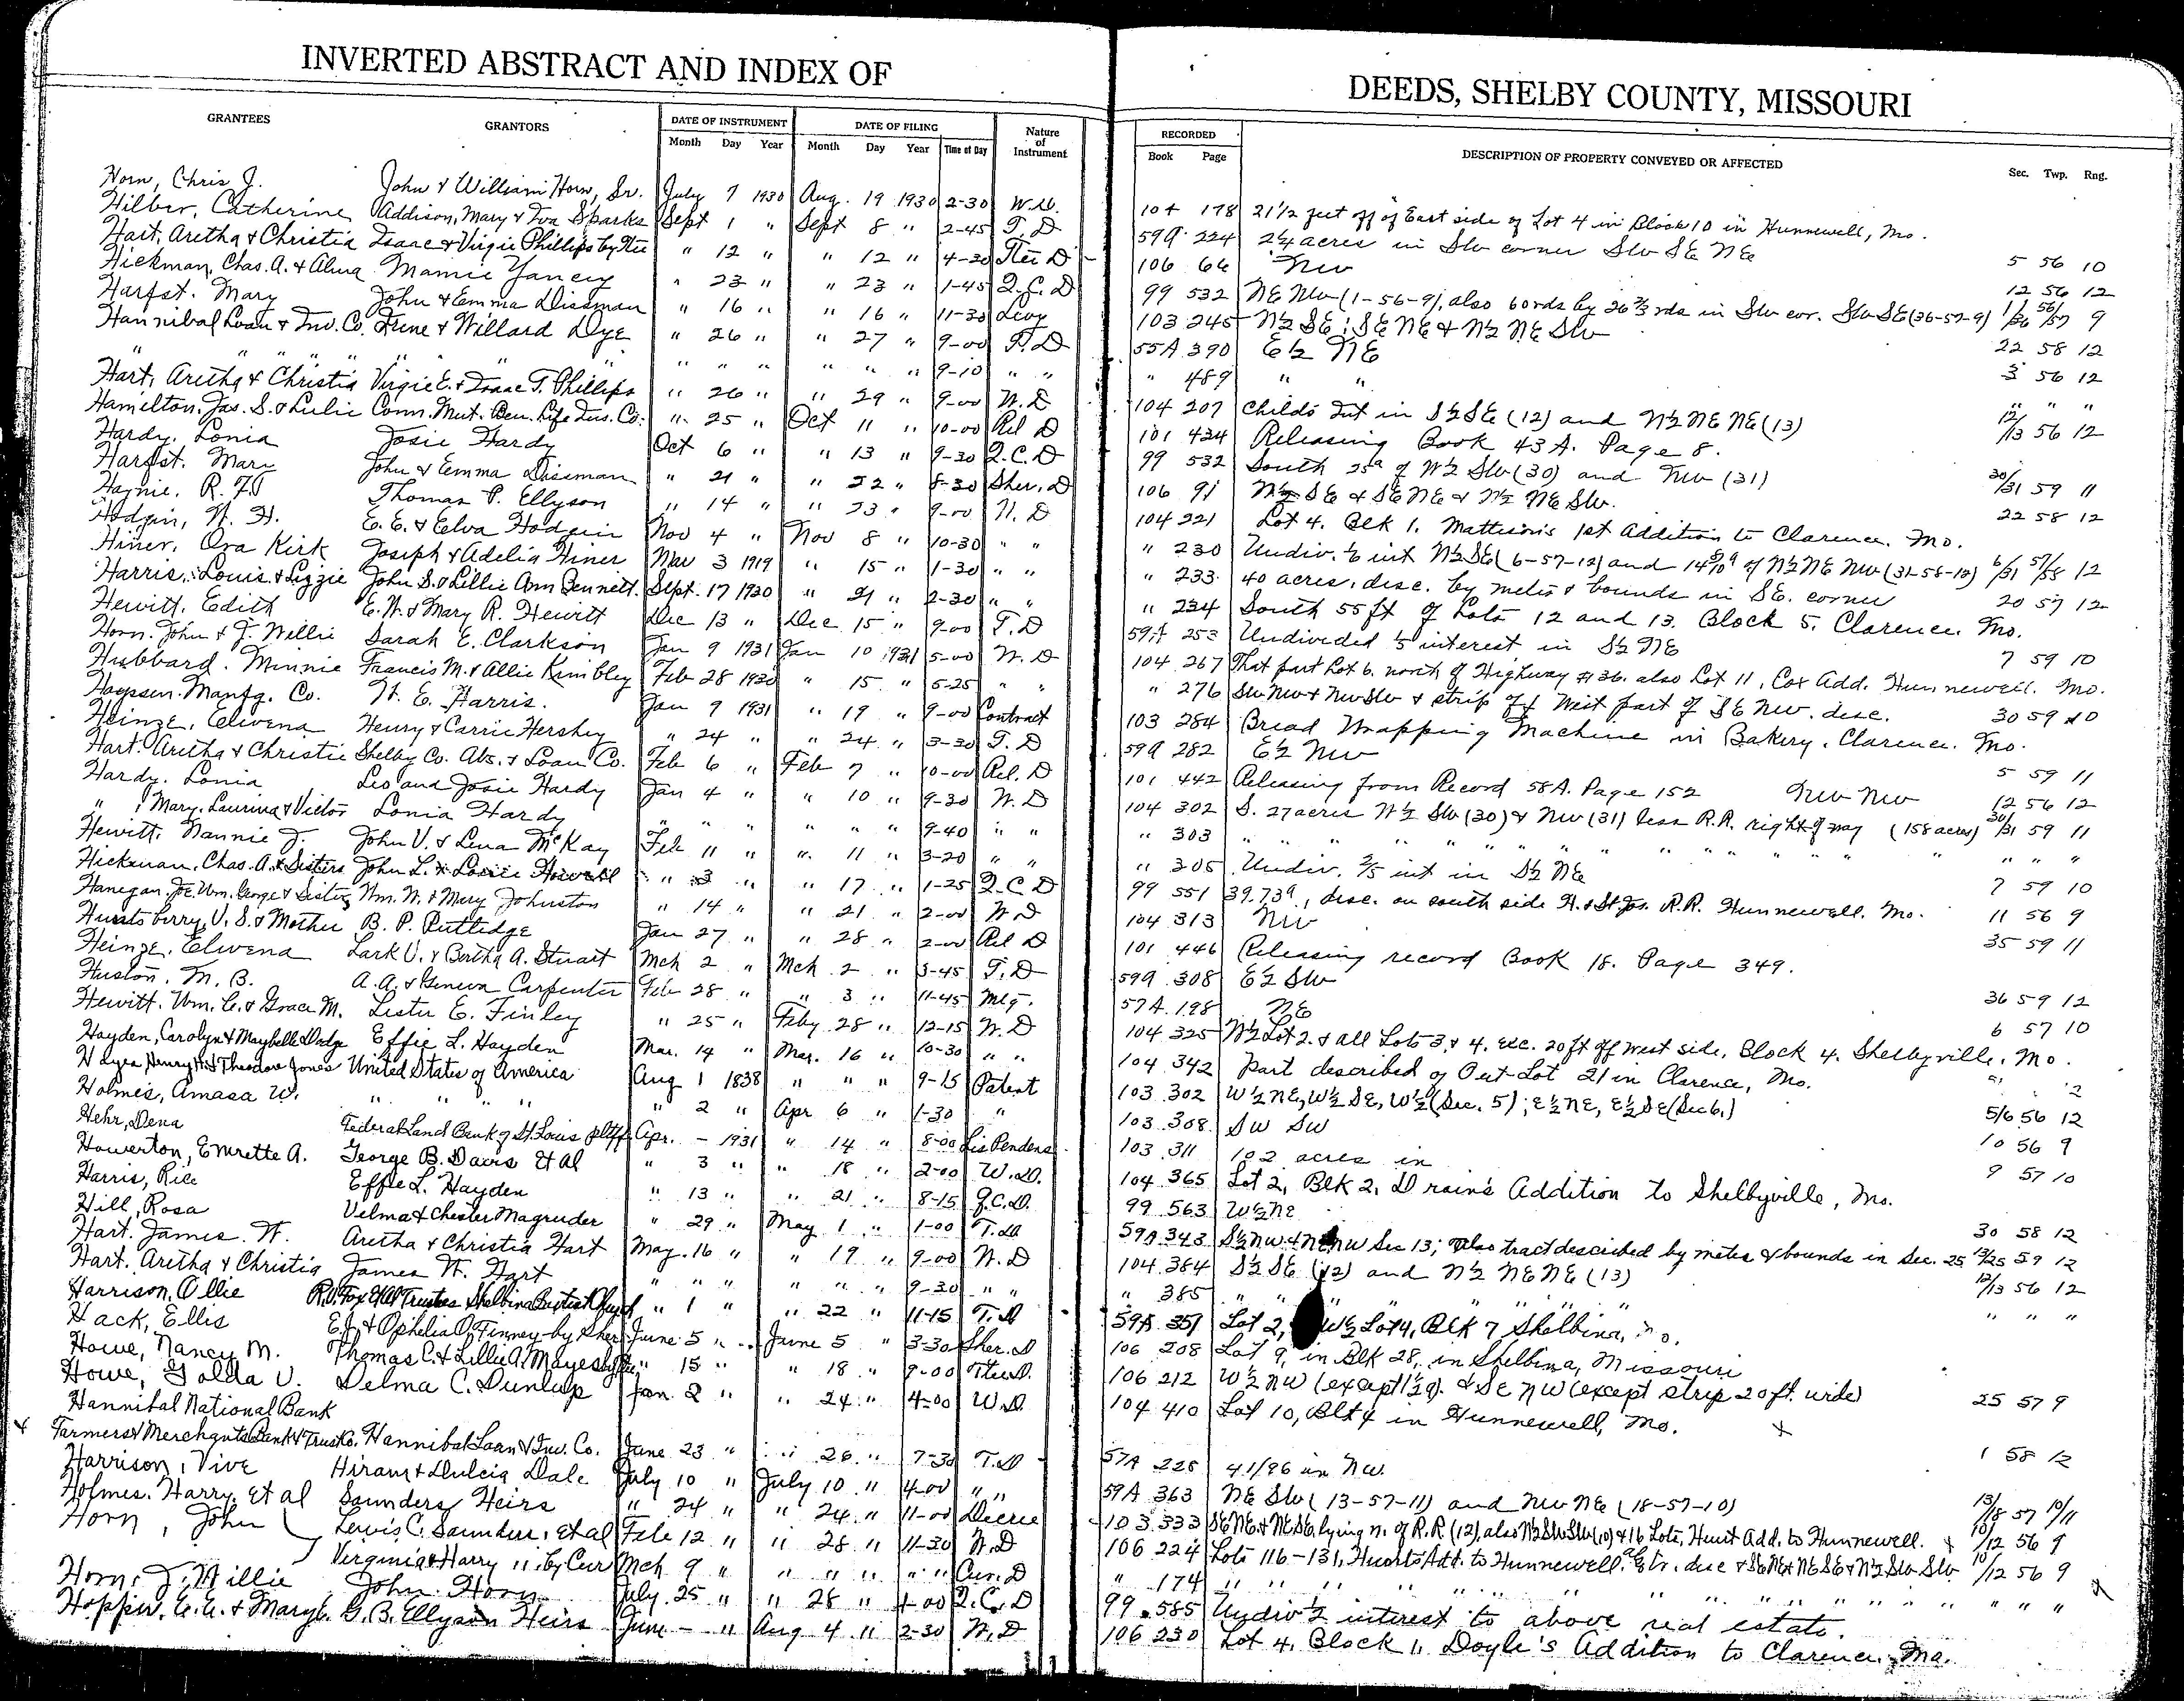 INVERTED ABSTRACT AND INDEX OF DEEDS, SHELBY COUNTY, MISSOURI
GRANTEES GRANTORS DATE OF INSTRUMENT DATE OF FILING Nature of Instrument RECORDED DESCRIPTION OF PROPERTY CONVEYED OR AFFECTED Sec. Twp. Rng.
Month Day Year Month Day Year Time of Day Book Page
Horn, Chris J. John & William Horn, Sr. July 7 1930 Aug. 19 1930 2-30 W.D. 104 178 21 1/2 feet off of East side of Lot 4 in Block 10 in Hunnewell, Mo.
Hilber, Catherine Addison, Mary & Iva Sparks Sept 1 " Sept 8 " 2-45 T.D 59A 224 2 1/4 acres in SW corner SW SE NE 5 56 10
Hart, Aretha & Christia Isaac & Virgie Phillips by Tte " 12 " " 12 " 4-30 Tte D 106 66 NW 12 56 12
Hickman, Chas. A. & Alma Mamie Yancey " 23 " " 23 " 1-45 Q.C.D 99 532 NE NW (1-56-9), also 60 rds by 26 2/3 rds in SW cor. SW SE (36-57-9) 1/36 56/57 9
Harfst. Mary John & Emma Dissman " 16 " " 16 " 11-30 Levy 103 245 N½ SE; SE NE & N½ NE SW 22 58 12
Hannibal Loan & Inv. Co. June & Willard Dye " 26 " " 27 " 9-00 T.D 55A 390 E½ NE 3 56 12
" " " " " " " " " " " " " 9-10 " " " 489 " " " " "
Hart, Aretha & Christia Virgie E. & Isaac T. Phillips " 26 " " 29 " 9-00 W.D 104 207 Childs Int in S½ SE (12) and N½ NE NE (13) 12/13 56 12
Hamilton, Jas. S. & Lulie Conn. Mut. Ben. Life Ins. Co. " 25 " Oct 11 " 10-00 Rel D 101 434 Releasing Book 43A. Page 8.
Hardy. Lonia Josie Hardy Oct 6 " " 13 " 9-30 Q.C.D 99 532 South 25a of W½ SW (30) and NW (31) 30/31 59 11
Harfst. Mary John & Emma Dissman " 21 " " 22 " 8-30 Sher. D 106 91 N½ SE & SE NE & N½ NE SW. 22 58 12
Haynie. R. F. Thomas P. Ellyson " 14 " " 23 " 9-00 W. D 104 221 Lot 4. Blk 1. Mattison's 1st Addition to Clarence. Mo.
Hodgin, W. H. E. E. & Elva Hodgin Nov 4 " Nov 8 " 10-30 " " " 230 Undiv. 1/6 int N½ SE (6-57-12) and of N½ NE NW (31-58-12) 6/31 57/58 12
Hiner, Ora Kirk Joseph & Adelia Hiner Mar 3 1919 " 15 " 1-30 " " " 233 40 acres, desc. by metes & bounds in SE. corner 20 57 12
Harris, Louis & Lizzie John S. & Lillie Ann Bennett. Sept. 17 1930 " 21 " 2-30 " " " 234 South 55 ft of Lots 12 and 13. Block 5. Clarence. Mo.
Hewitt. Edith E. W. & Mary R. Hewitt Dec 13 " Dec. 15 " 9-00 T.D 59A 253 Undivided 1/5 interest in S½ NE 7 59 10
Horn. John & J. Willie Sarah E. Clarkson Jan 9 1931 Jan 10 1931 5-00 W. D 104 267 That part Lot 6. north of Highway #36. also Lot 11, Cox Add. Hunnewell. Mo.
Hubbard. Minnie Francis M. & Allie Kimbley Feb 28 1930 " 15 " 5-25 " " " 276 SW NW & NW SW & strip off West part of SE NW. desc. 30 59 10
Hayssen. Manfg. Co. W. E. Harris. Jan 9 1931 " 19 " 9-00 Contract 103 284 Bread Wrapping Machine in Bakery. Clarence. Mo.
Heinze, Elwena Henry & Carrie Hershey " 24 " " 24 " 3-30 T. D 59A 282 E½ NW 5 59 11
Hart. Aretha & Christie Shelby Co. Abs. & Loan Co. Feb 6 " Feb 7 " 10-00 Rel. D 101 442 Releasing from Record 58A. Page 152 NW NW 12 56 12
Hardy. Lonia Leo and Josie Hardy Jan 4 " " 10 " 9-30 W. D 104 302 S. 27 acres W½ SW (30) & NW (31) less R.R. right of way (158 acres) 30/31 59 11
" , Mary. Laurina & Victor Lonia Hardy " " " " " " 9-40 " " " 303 " " " " " " " " " " "
Hewitt. Nannie J. John V. & Lena McKay Feb 11 " " 11 " 3-20 " " " 305 Undiv. 2/5 int in S½ NE 7 59 10
Hickman. Chas. A. & Sisters John L. & Howell " 3 " " 17 " 1-25 Q.C.D 99 551 39.73a, desc. on south side H. & St Jos. R.R. Hunnewell. Mo. 11 56 9
Hanegan. Joe. Wm. George & Sisters Wm. W. & Mary Johnston " 14 " " 21 " 2-00 W. D 104 313 NW 35 59 11
Huntsberry, V. S. & Mother B. P. Rutlidge Jan 27 " " 28 " 2-00 Rel D 101 446 Releasing record Book 18. Page 349.
Heinze, Elwena Lark U. & Bertha A. Stuart Mch 2 " Mch. 2 " 3-45 T. D 59A 308 E½ SW 36 59 12
Huston. M. B. A. A. & Geneva Carpenter Feb 28 " " 3 " 11-45 Mtg. 57A 198 NE 6 57 10
Hewitt. Wm. C. & Grace M. Lester E. Finley " 25 " Feby 28 " 12-15 W. D 104 325 W½ Lot 2. & all Lots 3. & 4. exc. 20 ft off West side, Block 4. Shelbyville. Mo.
Hayden, Carolyn & Maybelle Dodge Effie L. Hayden Mar. 14 " Mar. 16 " 10-30 " " 104 342 Part described of Out-Lot 21 in Clarence, Mo.
Henry H. & Theodore Jones United States of America Aug 1 1838 " " " 9-15 Patent 103 302 W½ NE, W½ SE, W½ (Sec. 5); E½ NE, E½ SE (Sec 6.) 5/6 56 12
Holmes, Amasa W. " " " " " 2 " Apr 6 " 1-30 " 103 308 SW SW 10 56 9
Hehr, Dena Federal Land Bank of St. Louis pltff Apr. - 1931 " 14 " 8-00 Lis Pendens 103 311 102 acres in 9 57 10
Howerton, Emrette A. George B. Davis Et Al " 3 " " 18 " 2-00 W.D. 104 365 Lot 2, Blk 2, Drain's Addition to Shelbyville, Mo.
Harris, Rice Effie L. Hayden " 13 " " 21 " 8-15 Q.C.D. 99 563 W½ NE 30 58 12
Hill, Rosa Velma & Chester Magruder " 29 " May 1 " 1-00 T.D. 59A 343 S½ NW & NW Sec 13; Also tract described by metes & bounds in Sec. 25 13/25 59 12
Hart. James. W. Aretha & Christia Hart May. 16 " " 19 " 9-00 W. D 104 384 S½ SE (12) and N½ NE NE (13) 12/13 56 12
Hart. Aretha & Christia James W. Hart " " " " " " 9-30 " " " 385 " " " " " " " "
Harrison, Ollie R.D. Fox Et Al Trustees Shelbina Baptist Church " 1 " " 22 " 11-15 T.D 59A 351 Lot 2, W½ Lot 4, Blk 7 Shelbina, Mo.
Hack, Ellis E.J. & Ophelia O. Finney-by Sher. June 5 " June 5 " 3-30 Sher. D 106 208 Lot 9, in Blk 28, in Shelbina, Missouri
Howe, Nancy M. Thomas C. & Lillie A. Mayes by Tte " 15 " " 18 " 9-00 Ttee D. 106 212 W½ NW (except 1½a). & SE NW (except strip 20 ft. wide) 25 57 9
Howe, Golda V. Delma C. Dunlap Jan. 2 " " 24 " 4-00 W.D. 104 410 Lot 10, Blk 4 in Hunnewell, Mo.
Hannibal National Bank x
x Farmers & Merchants Bank & Trust Co. Hannibal Loan & Inv. Co. June 23 " " 26 " 7-30 T.D 57A 225 41/96 in NW. 1 58 12
Harrison, Vive Hiram & Dulcia Dale July 10 " July 10 " 4-00 " " 59A 363 NE SW (13-57-11) and NW NE (18-57-10) 13/18 57 10/11
Holmes. Harry, Et al Saunders Heirs " 24 " " 24 " 11-00 Decree 103 333 SE NE & NE SE, lying n. of R.R (12), also N½ SW SW (10) & 16 Lots, Hunt Add. to Hunnewell. x 10/12 56 9
Horn, John Lewis C. Saunders, et al Feb 12 " " 28 " 11-30 W.D 106 224 Lots 116-131, Huorts Add. to Hunnewell. tr. desc & SE NE & NE SE & N½ SW SW 10/12 56 9
Virginia & Harry " by Cur Mch 9 " " " " " " Cur. D " 174 " " " " " " " " " " " " x
Horn, J. Willie John. Horn July. 25 " " 28 " 4-00 Q.C.D 99 585 Undiv ½ interest to above real estate.
Hoppin, C. C. & Mary E. G. B. Ellyson Heirs June - " Aug 4 " 2-30 W.D 106 230 Lot 4, Block 1, Doyle's Addition to Clarence. Mo.